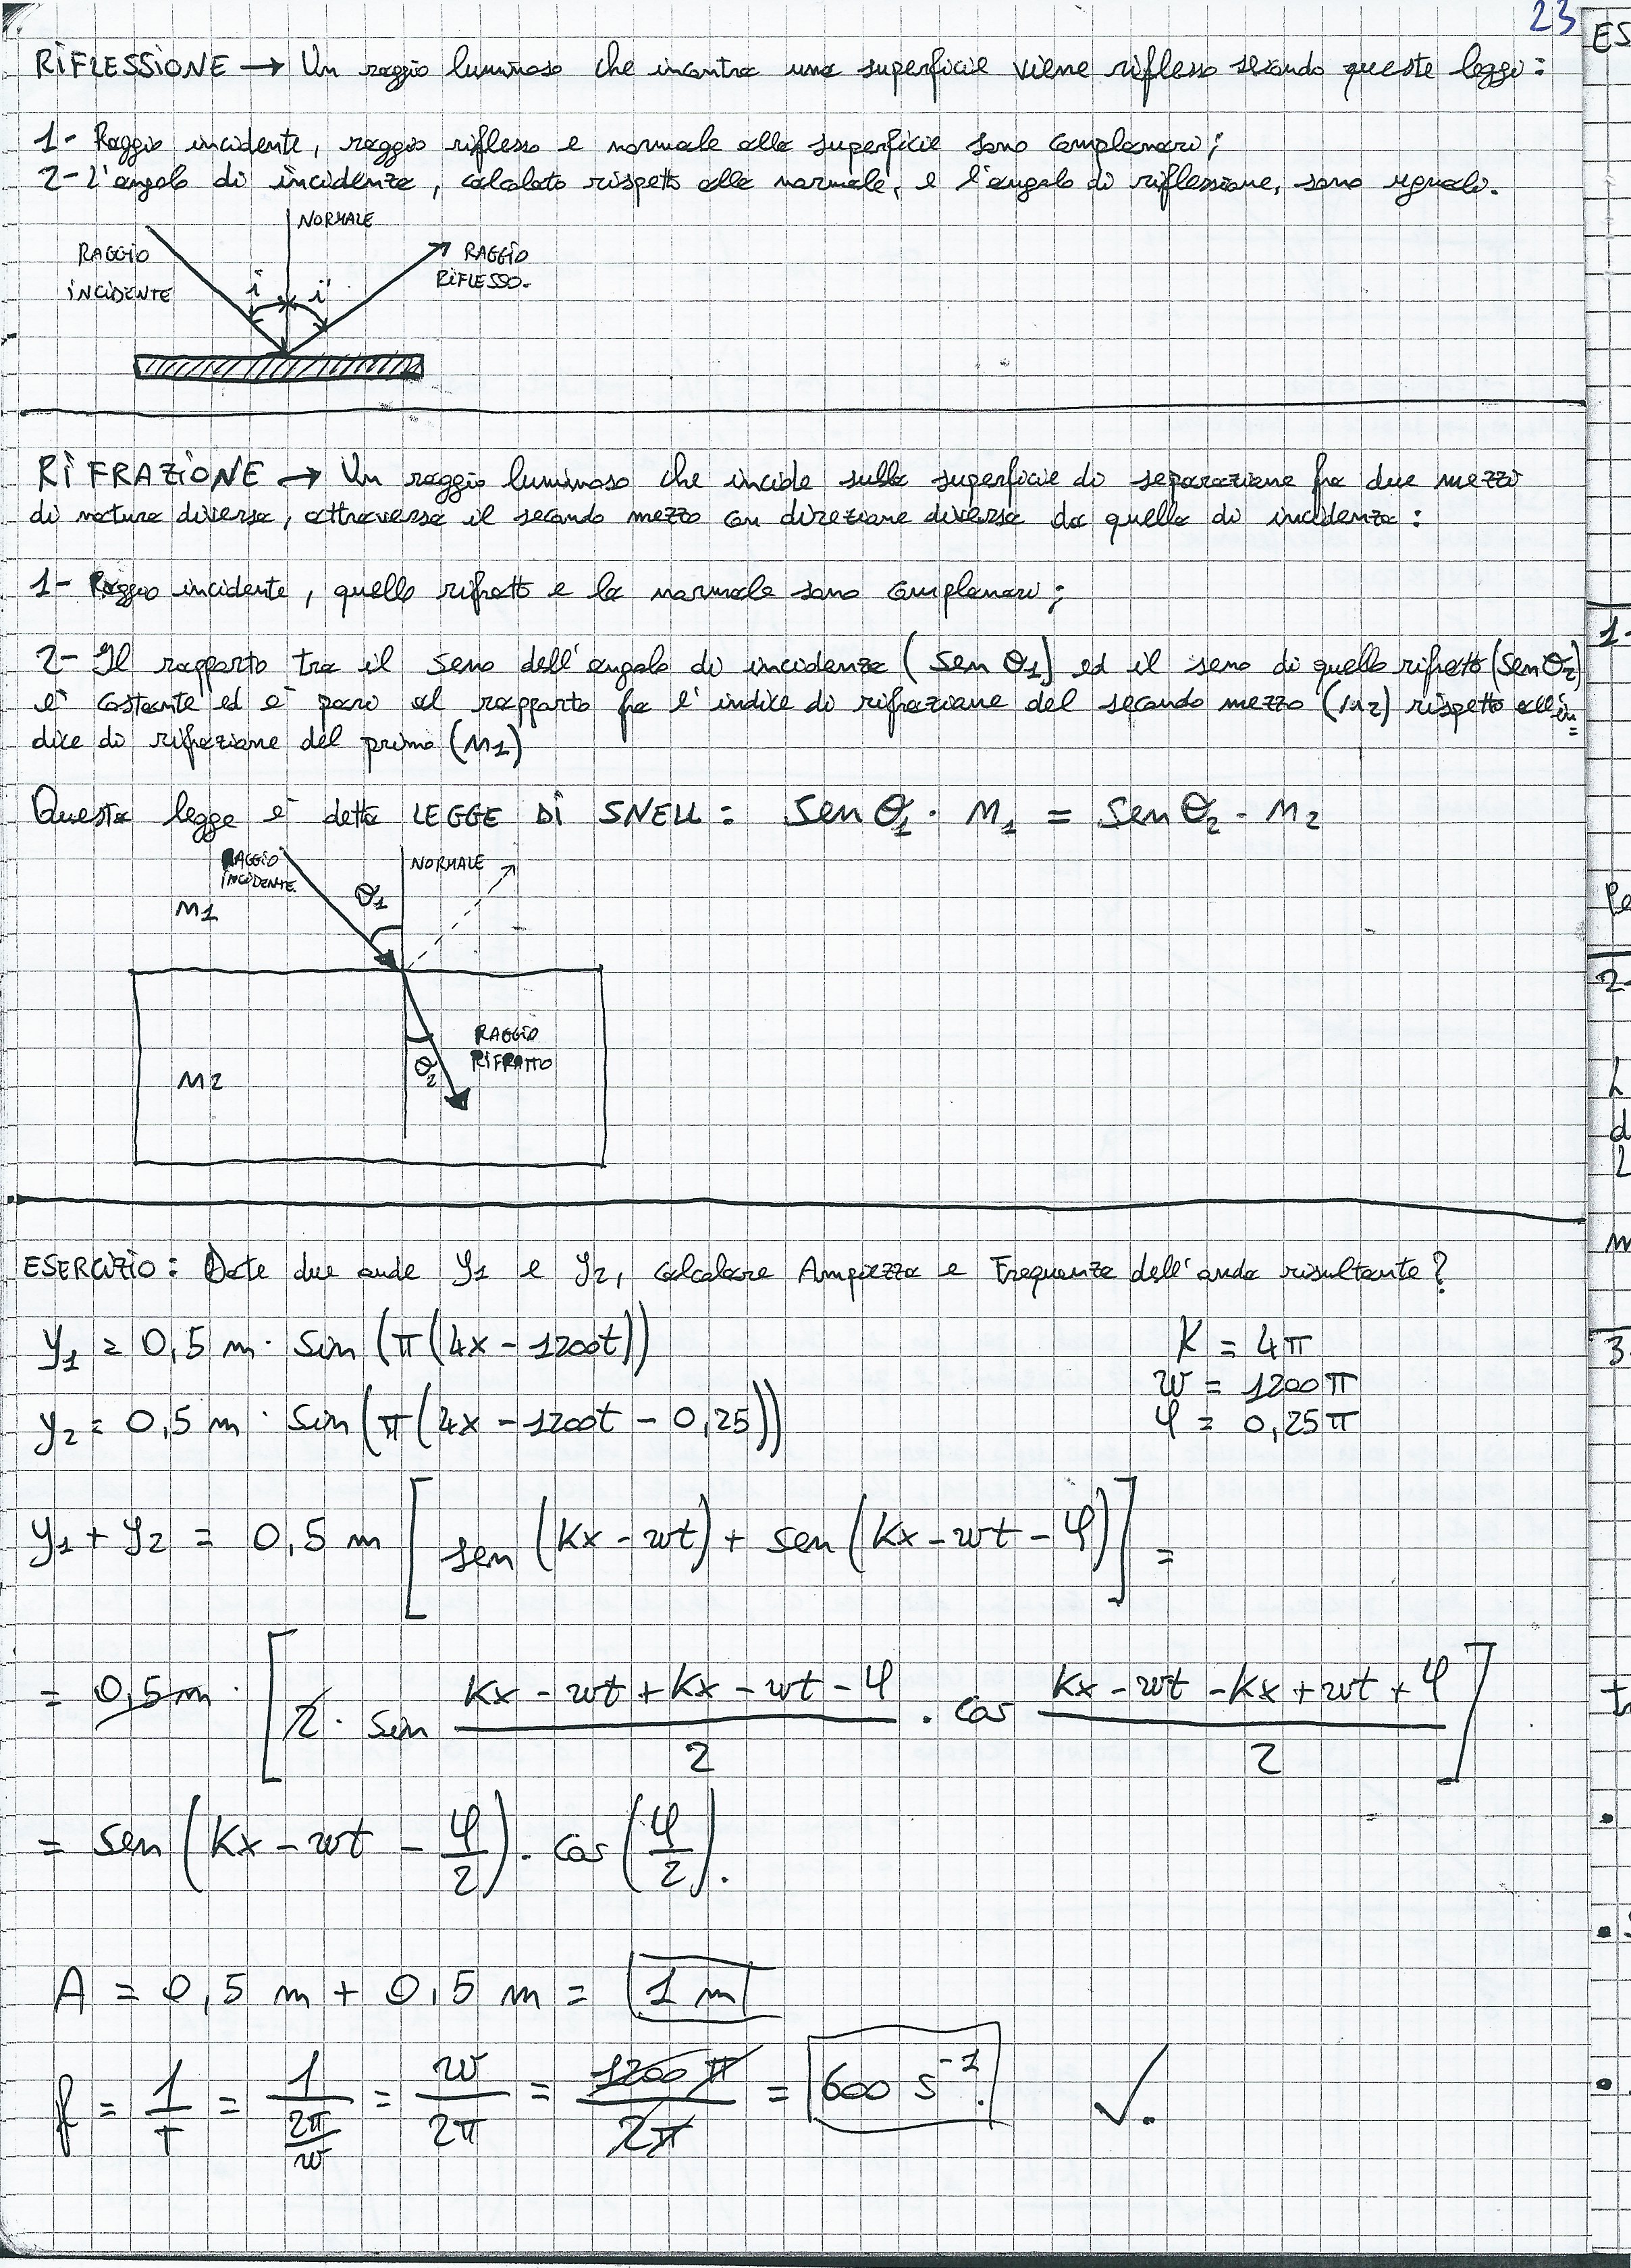 23
RIFLESSIONE → Un raggio luminoso che incontra una superficie viene riflesso secondo queste leggi:
1- Raggio incidente, raggio riflesso e normale alla superficie sono complanari;
2- L'angolo di incidenza, calcolato rispetto alla normale, e l'angolo di riflessione, sono uguali.
NORMALE
RAGGIO
INCIDENTE
i
i'
RAGGIO
RIFLESSO.
RIFRAZIONE → Un raggio luminoso che incide sulla superficie di separazione fra due mezzi
di natura diversa, attraversa il secondo mezzo con direzione diversa da quella di incidenza:
1- Raggio incidente, quello rifratto e la normale sono complanari;
2- Il rapporto tra il seno dell'angolo di incidenza (sen θ1) ed il seno di quello rifratto (sen θ2)
è costante ed è pari al rapporto fra l'indice di rifrazione del secondo mezzo (n2) rispetto all'in=
dice di rifrazione del primo (n1)
Questa legge è detta LEGGE DI SNELL: sen θ1 · n1 = sen θ2 · n2
RAGGIO
INCIDENTE
NORMALE
θ1
n1
n2
θ2
RAGGIO
RIFRATTO
ESERCIZIO: Date due onde y1 e y2, calcolare Ampiezza e Frequenza dell'onda risultante?
y1 = 0,5 m · sin (π(4x - 1200t))
K = 4π
w = 1200π
y2 = 0,5 m · sin (π(4x - 1200t - 0,25))
φ = 0,25π
y1 + y2 = 0,5 m [sen (Kx - wt) + sen (Kx - wt - φ)] =
= 0,5 m · [2 · sin (Kx - wt + Kx - wt - φ)/2 · cos (Kx - wt - Kx + wt + φ)/2]
= sen (Kx - wt - φ/2) · cos (φ/2).
A = 0,5 m + 0,5 m = 1 m
f = 1/T = 1/(2π/w) = w/2π = 1200π/2π = 600 s⁻¹. ✓.
ES
1-
2-
3.